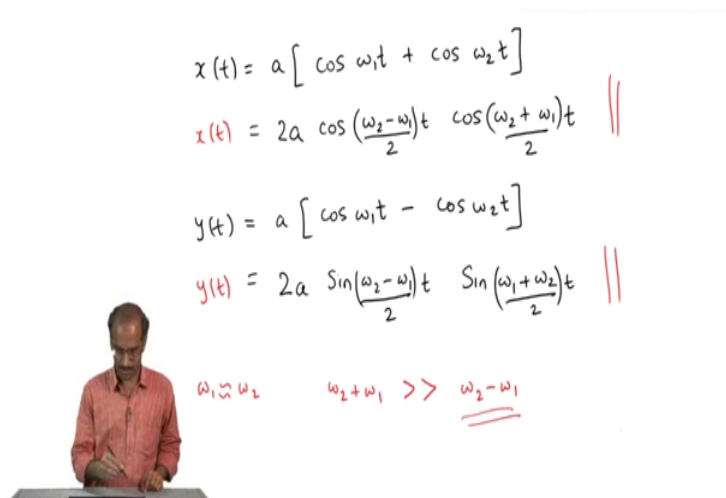 x(t) = a[ cos ω₁t + cos ω₂t ]
x(t) = 2a cos((ω₂−ω₁)/2)t cos((ω₂+ω₁)/2)t ||
y(t) = a[ cos ω₁t − cos ω₂t ]
y(t) = 2a Sin((ω₂−ω₁)/2)t Sin((ω₁+ω₂)/2)t ||
ω₁ ≈ ω₂ ω₂+ω₁ >> ω₂−ω₁